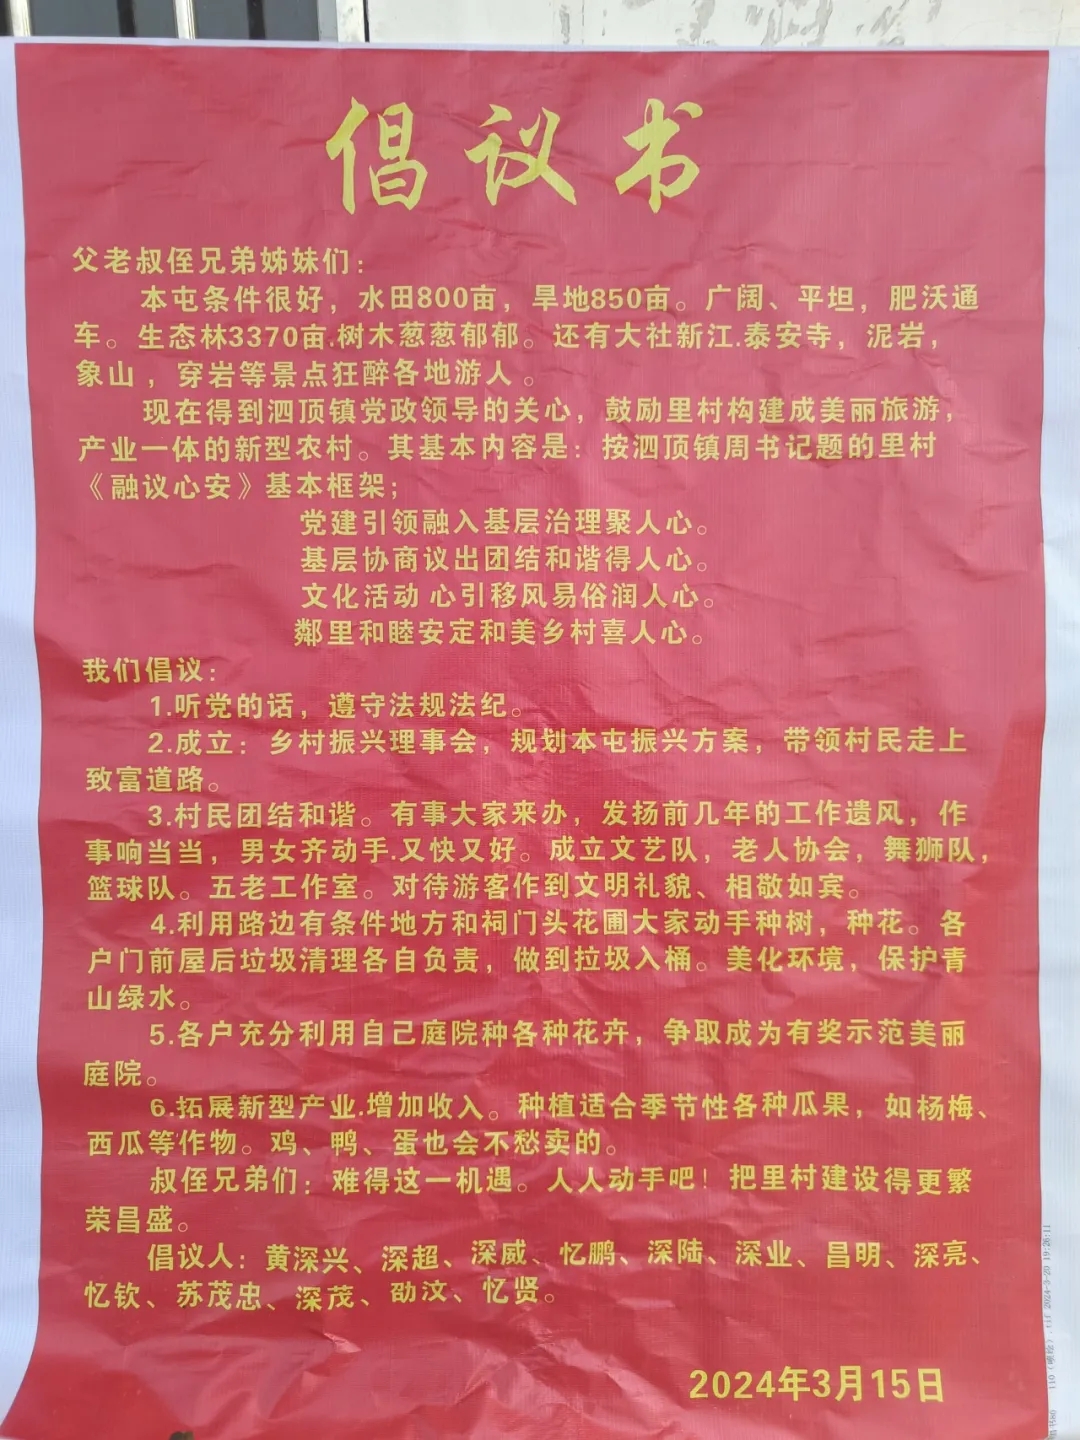 倡议书
父老叔侄兄弟姊妹们：
本屯条件很好，水田800亩，旱地850亩。广阔、平坦，肥沃通
车。生态林3370亩.树木葱葱郁郁。还有大社新江.泰安寺，泥岩，
象山，穿岩等景点狂醉各地游人。
现在得到泗顶镇党政领导的关心，鼓励里村构建成美丽旅游，
产业一体的新型农村。其基本内容是：按泗顶镇周书记题的里村
《融议心安》基本框架；
党建引领融入基层治理聚人心。
基层协商议出团结和谐得人心。
文化活动 心引移风易俗润人心。
鄰里和睦安定和美乡村喜人心。
我们倡议：
1.听党的话，遵守法规法纪。
2.成立：乡村振兴理事会，规划本屯振兴方案，带领村民走上
致富道路。
3.村民团结和谐。有事大家来办，发扬前几年的工作遗风，作
事响当当，男女齐动手.又快又好。成立文艺队，老人协会，舞狮队，
篮球队。五老工作室。对待游客作到文明礼貌、相敬如宾。
4.利用路边有条件地方和祠门头花圃大家动手种树，种花。各
户门前屋后垃圾清理各自负责，做到垃圾入桶。美化环境，保护青
山绿水。
5.各户充分利用自己庭院种各种花卉，争取成为有奖示范美丽
庭院。
6.拓展新型产业.增加收入。种植适合季节性各种瓜果，如杨梅、
西瓜等作物。鸡、鸭、蛋也会不愁卖的。
叔侄兄弟们：难得这一机遇。人人动手吧！把里村建设得更繁
荣昌盛。
倡议人：黄深兴、深超、深威、忆鹏、深陆、深业、昌明、深亮、
忆钦、苏茂忠、深茂、劭汶、忆贤。
2024年3月15日